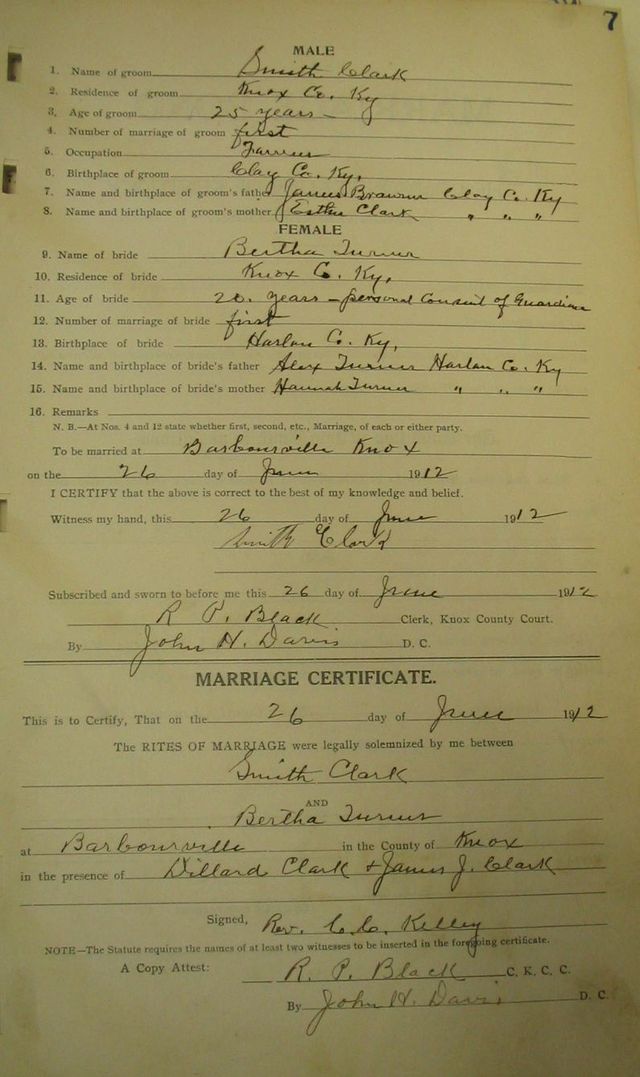 7
MALE
1. Name of groom Smith Clark
2. Residence of groom Knox Co. Ky
3. Age of groom 25 years
4. Number of marriage of groom first
5. Occupation Farmer
6. Birthplace of groom Clay Co. Ky,
7. Name and birthplace of groom's father James Clay Co. Ky
8. Name and birthplace of groom's mother Esther Clark " " "
FEMALE
9. Name of bride Bertha Turner
10. Residence of bride Knox Co. Ky,
11. Age of bride 20. years – personal Consent of Guardian
12. Number of marriage of bride first
13. Birthplace of bride Harlan Co. Ky,
14. Name and birthplace of bride's father Alex Turner Harlan Co. Ky
15. Name and birthplace of bride's mother Hannah Turner " " "
16. Remarks
N. B.—At Nos. 4 and 12 state whether first, second, etc., Marriage, of each or either party.
To be married at Barbourville Knox
on the 26 day of June 1912
I CERTIFY that the above is correct to the best of my knowledge and belief.
Witness my hand, this 26 day of June 1912
Smith Clark
Subscribed and sworn to before me this 26 day of June 1912
R P. Black Clerk, Knox County Court.
By John H. Davis D. C.
MARRIAGE CERTIFICATE.
This is to Certify, That on the 26 day of June 1912
The RITES OF MARRIAGE were legally solemnized by me between
Smith Clark
AND
Bertha Turner
at Barbourville in the County of Knox
in the presence of Dillard Clark + James J. Clark
Signed, Rev. C. C. Kelley
NOTE—The Statute requires the names of at least two witnesses to be inserted in the foregoing certificate.
A Copy Attest: R. P. Black C. K. C. C.
By John H. Davis D. C.